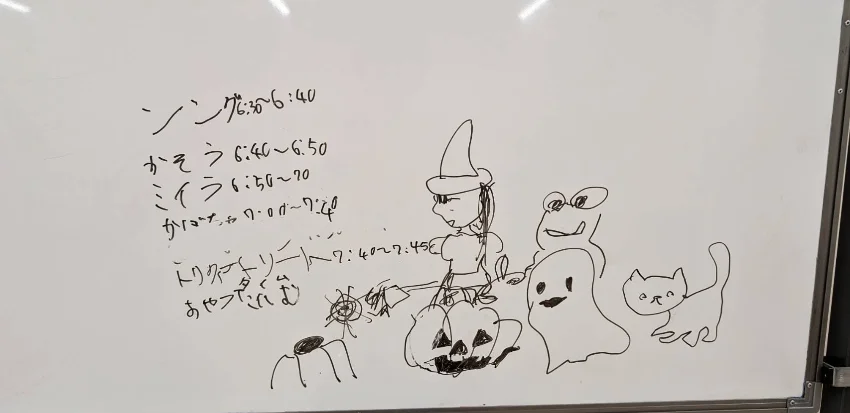 ソング6:30~6:40
かそう 6:40~6:50
ミイラ 6:50~70
かぼちゃ 7:00~7:40
トリックオアトリート 7:40~7:45
おやつ